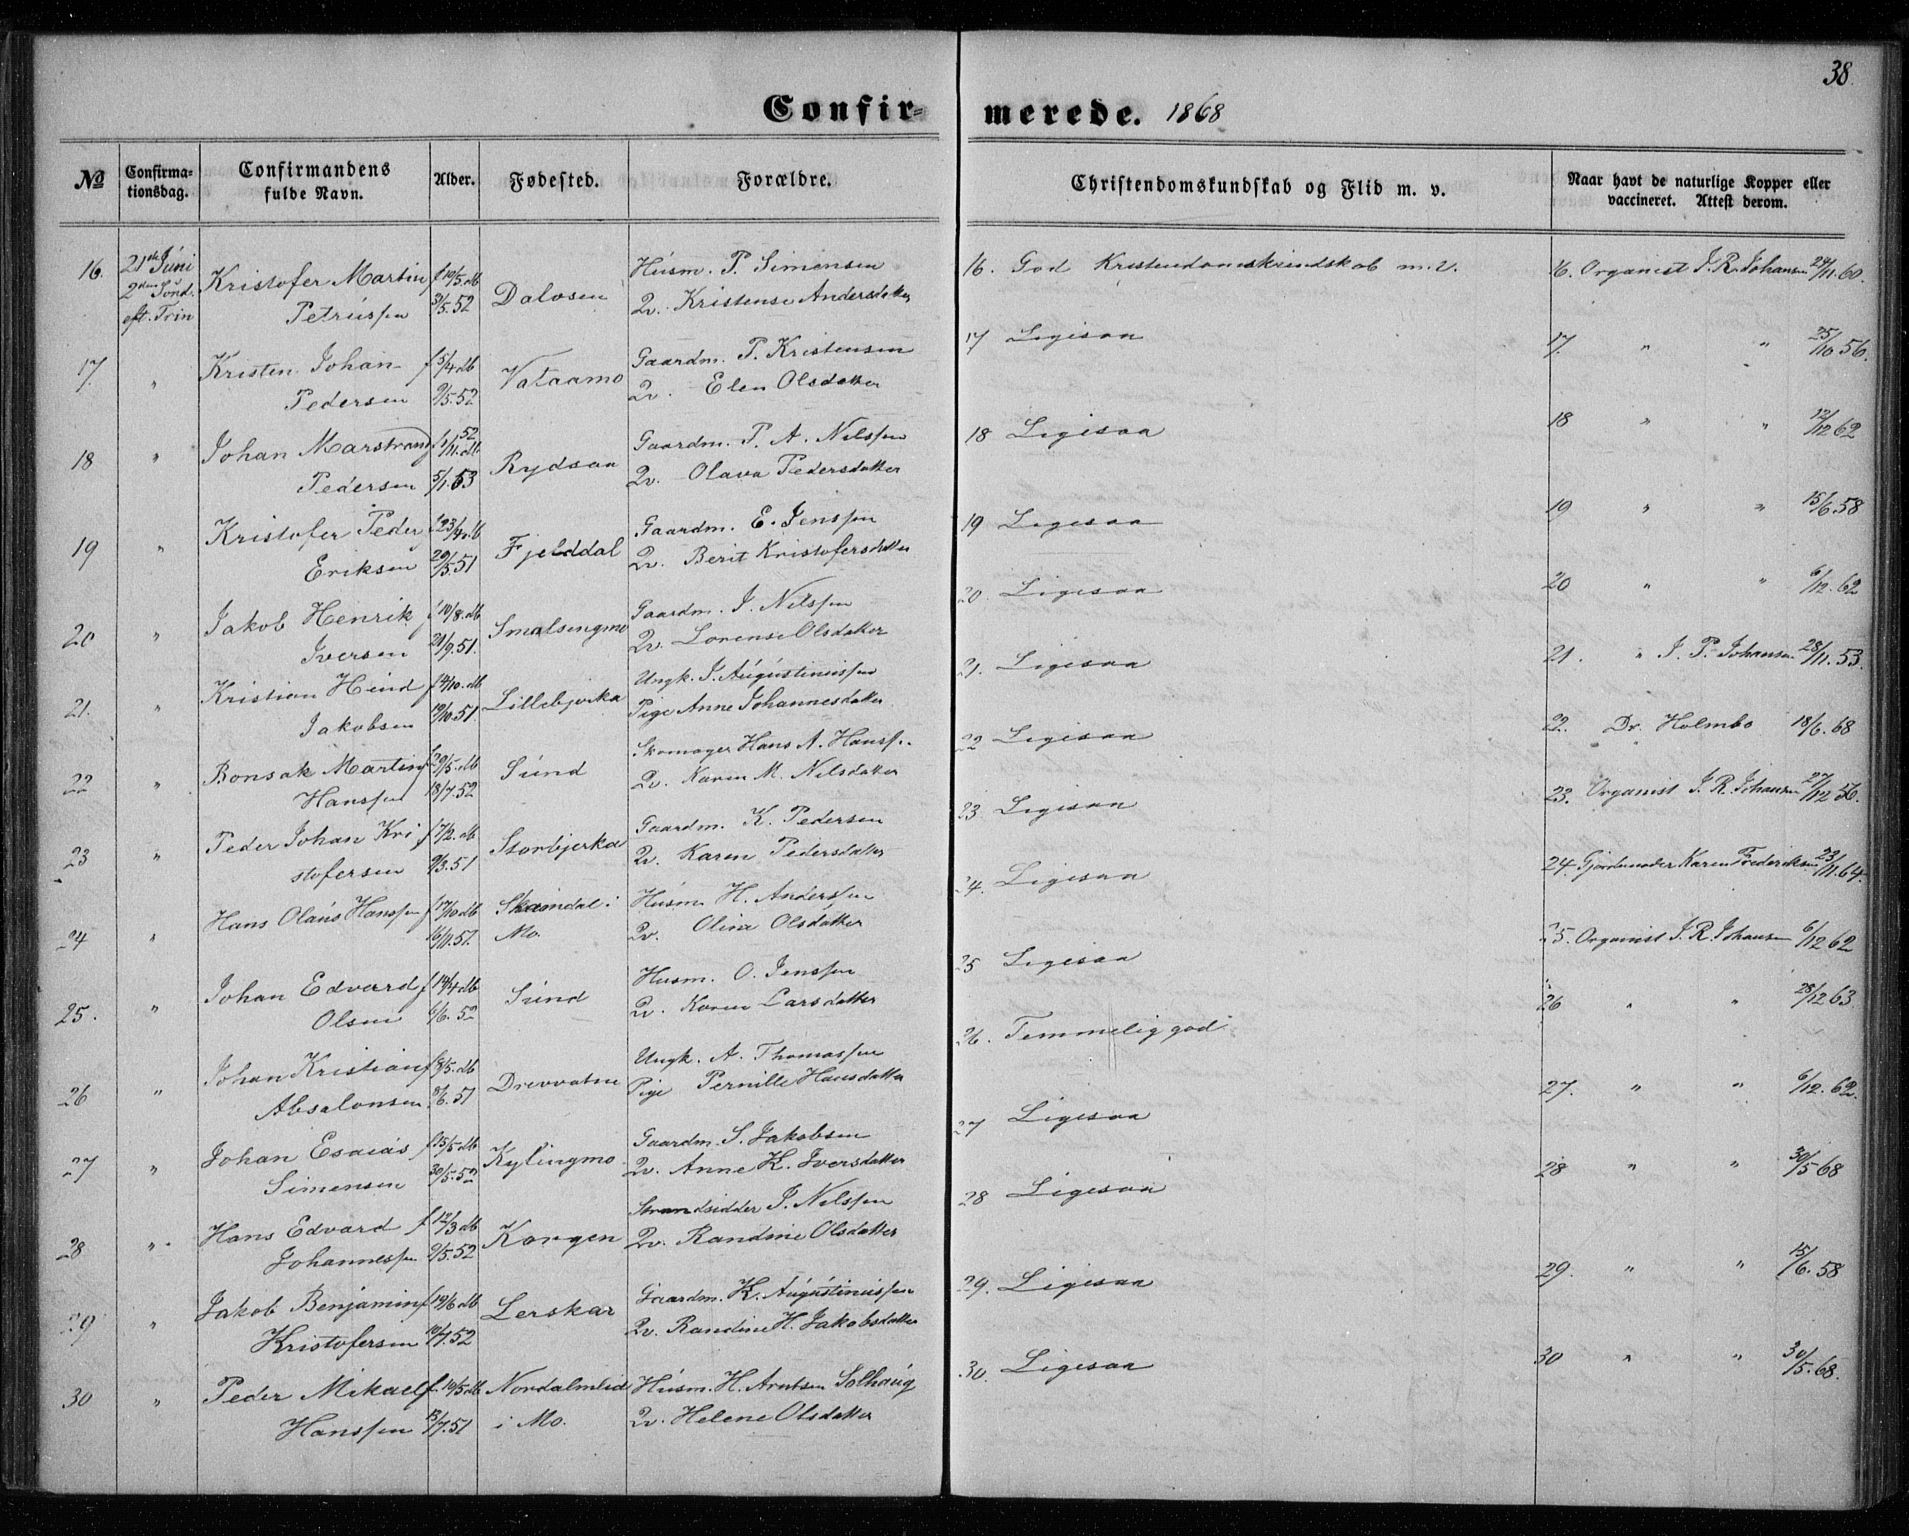 38.
Confirmerede. 1868
No
Confirmationsdag.
Confirmandens fulde Navn.
Alder.
Fødested.
Forældre.
Christendomskundskab og Flid m. v.
Naar havt de naturlige Kopper eller vaccineret. Attest derom.
16. 21de Juni 2den Sønd. eft. Trin Kristofer Martin Petrussen f 10/5. db 31/5. 52 Dalosen Husm. P. Simensen Qv. Kristense Andersdatter 16. God Kristendomskundskab m. v. 16. Organist J. R. Johansen 24/11. 60.
17. " Kristen Johan Pedersen f 5/4 db 9/5. 52 Vataamo Gaardm. P. Kristensen Qv. Elen Olsdatter 17 Ligesaa 17. " " 25/10 56.
18 " Johan Marstrand Pedersen f 1/11. 52 db 5/1. 53 Rydsaa Gaardm. P. A. Nilssen Qv. Olava Pedersdatter 18 Ligesaa 18 " " 12/12 62
19 " Kristofer Peder Eriksen f 23/4 db 29/5. 51 Fjelddal Gaardm. E. Jenssen Qv. Berit Kristofersdatter 19 Ligesaa 19 " " 15/6. 58
20 " Jakob Henrik Iversen f 10/8. db 21/9. 51. Smalsengmo Gaardm. I. Nilssen Qv. Lorense Olsdatter 20. Ligesaa 20 " " 6/12. 62
21. " Kristian Hind Jakobsen f 4/10. db 19/10. 51 Lillebjerka Ungk. J. Augustinussen Pige Anne Johannesdatter 21. Ligesaa 21. " J. P. Johansen 28/11. 53.
22 " Bonsak Martin Hanssen f 29/5. db 18/7. 52 Sund Skomager Hans A. Hanss. Qv. Karen M. Nilsdatter 22 Ligesaa 22. Dr. Holmbo 18/6. 68
23 " Peder Johan Kristofersen f 7/2. db 9/3. 51 Storbjerka Gaardm. K. Pedersen Qv. Karen Pedersdatter 23. Ligesaa 23. Organist J. R. Johansen 27/12 56.
24 " Hans Olaus Hanssen f 17/10 db 16/11. 51. Skamdal i Mo. Husm H. Anderssen Qv. Olina Olsdatter 24. Ligesaa 24. Gjordemoder Karen Frederiksen 23/11. 64.
25. " Johan Edvard Olsen f 14/4 db 6/6. 52 Sund Husm. O. Jenssen Qv. Karen Larsdatter 25 Ligesaa 25. Organist J. R. Johansen 6/12 62
26 " Johan Kristian Absalonsen f 9/5. db 8/6. 51 Drevvatne Ungk. A. Thomassen Pige Pernille Hansdatter 26. Temmelig god 26 " " 28/12 63
27 " Johan Esaias Simensen f 15/5. db 30/5. 52 Kylingmo Gaardm. S. Jakobsen Qv. Anne K. Iversdatter 27 Ligesaa 27. " " 6/12. 62.
28 " Hans Edvard Johannessen f 12/3 db 9/5. 52 Korgen Strandsidder J. Nilssen Qv. Randine Olsdatter 28 Ligesaa 28 " " 30/5 68
29 " Jakob Benjamin Kristofersen f 14/6 db 10/7. 52 Lerskar Gaardm. K. Augustinussen Qv. Randine H. Jakobsdatter 29. Ligesaa 29. " " 15/6. 58
30 " Peder Mikael Hanssen f. 10/5 db 13/7. 51 Nordalmlid i Mo. Husm. H. Arntsen Solhaug Qv. Helene Olsdatter 30. Ligesaa 30 " " 30/5. 68.